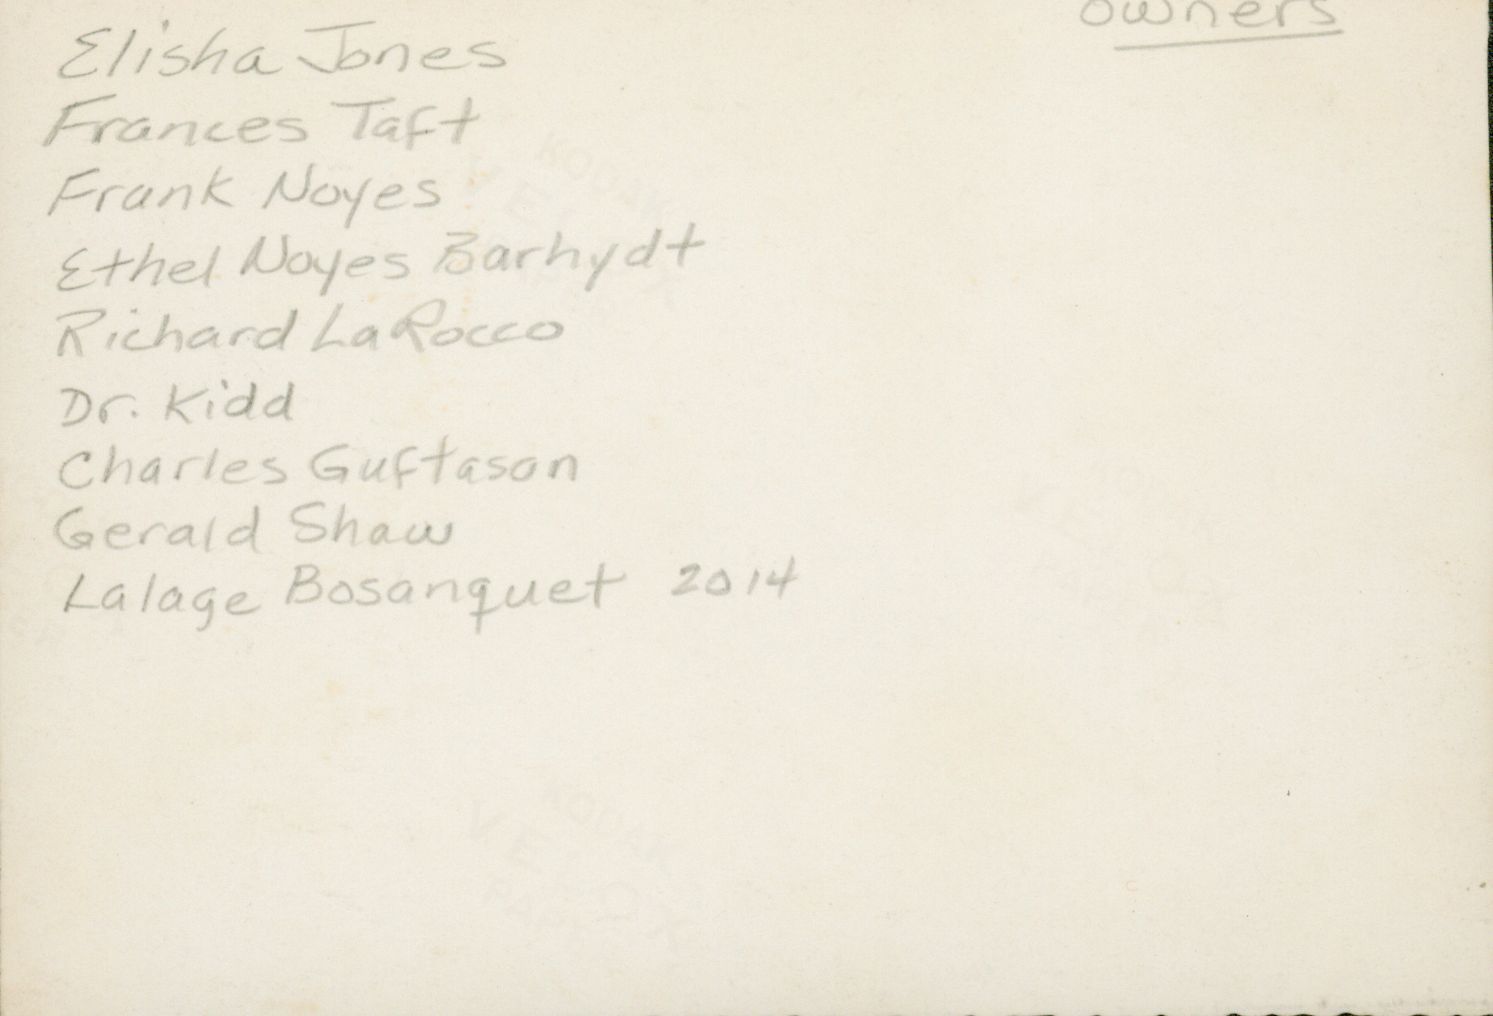 owners
Elisha Jones
Frances Taft
Frank Noyes
Ethel Noyes Barhydt
Richard LaRocco
Dr. Kidd
Charles Guftason
Gerald Shaw
Lalage Bosanquet 2014
KODAK
VELOX
KODAK
VELOX